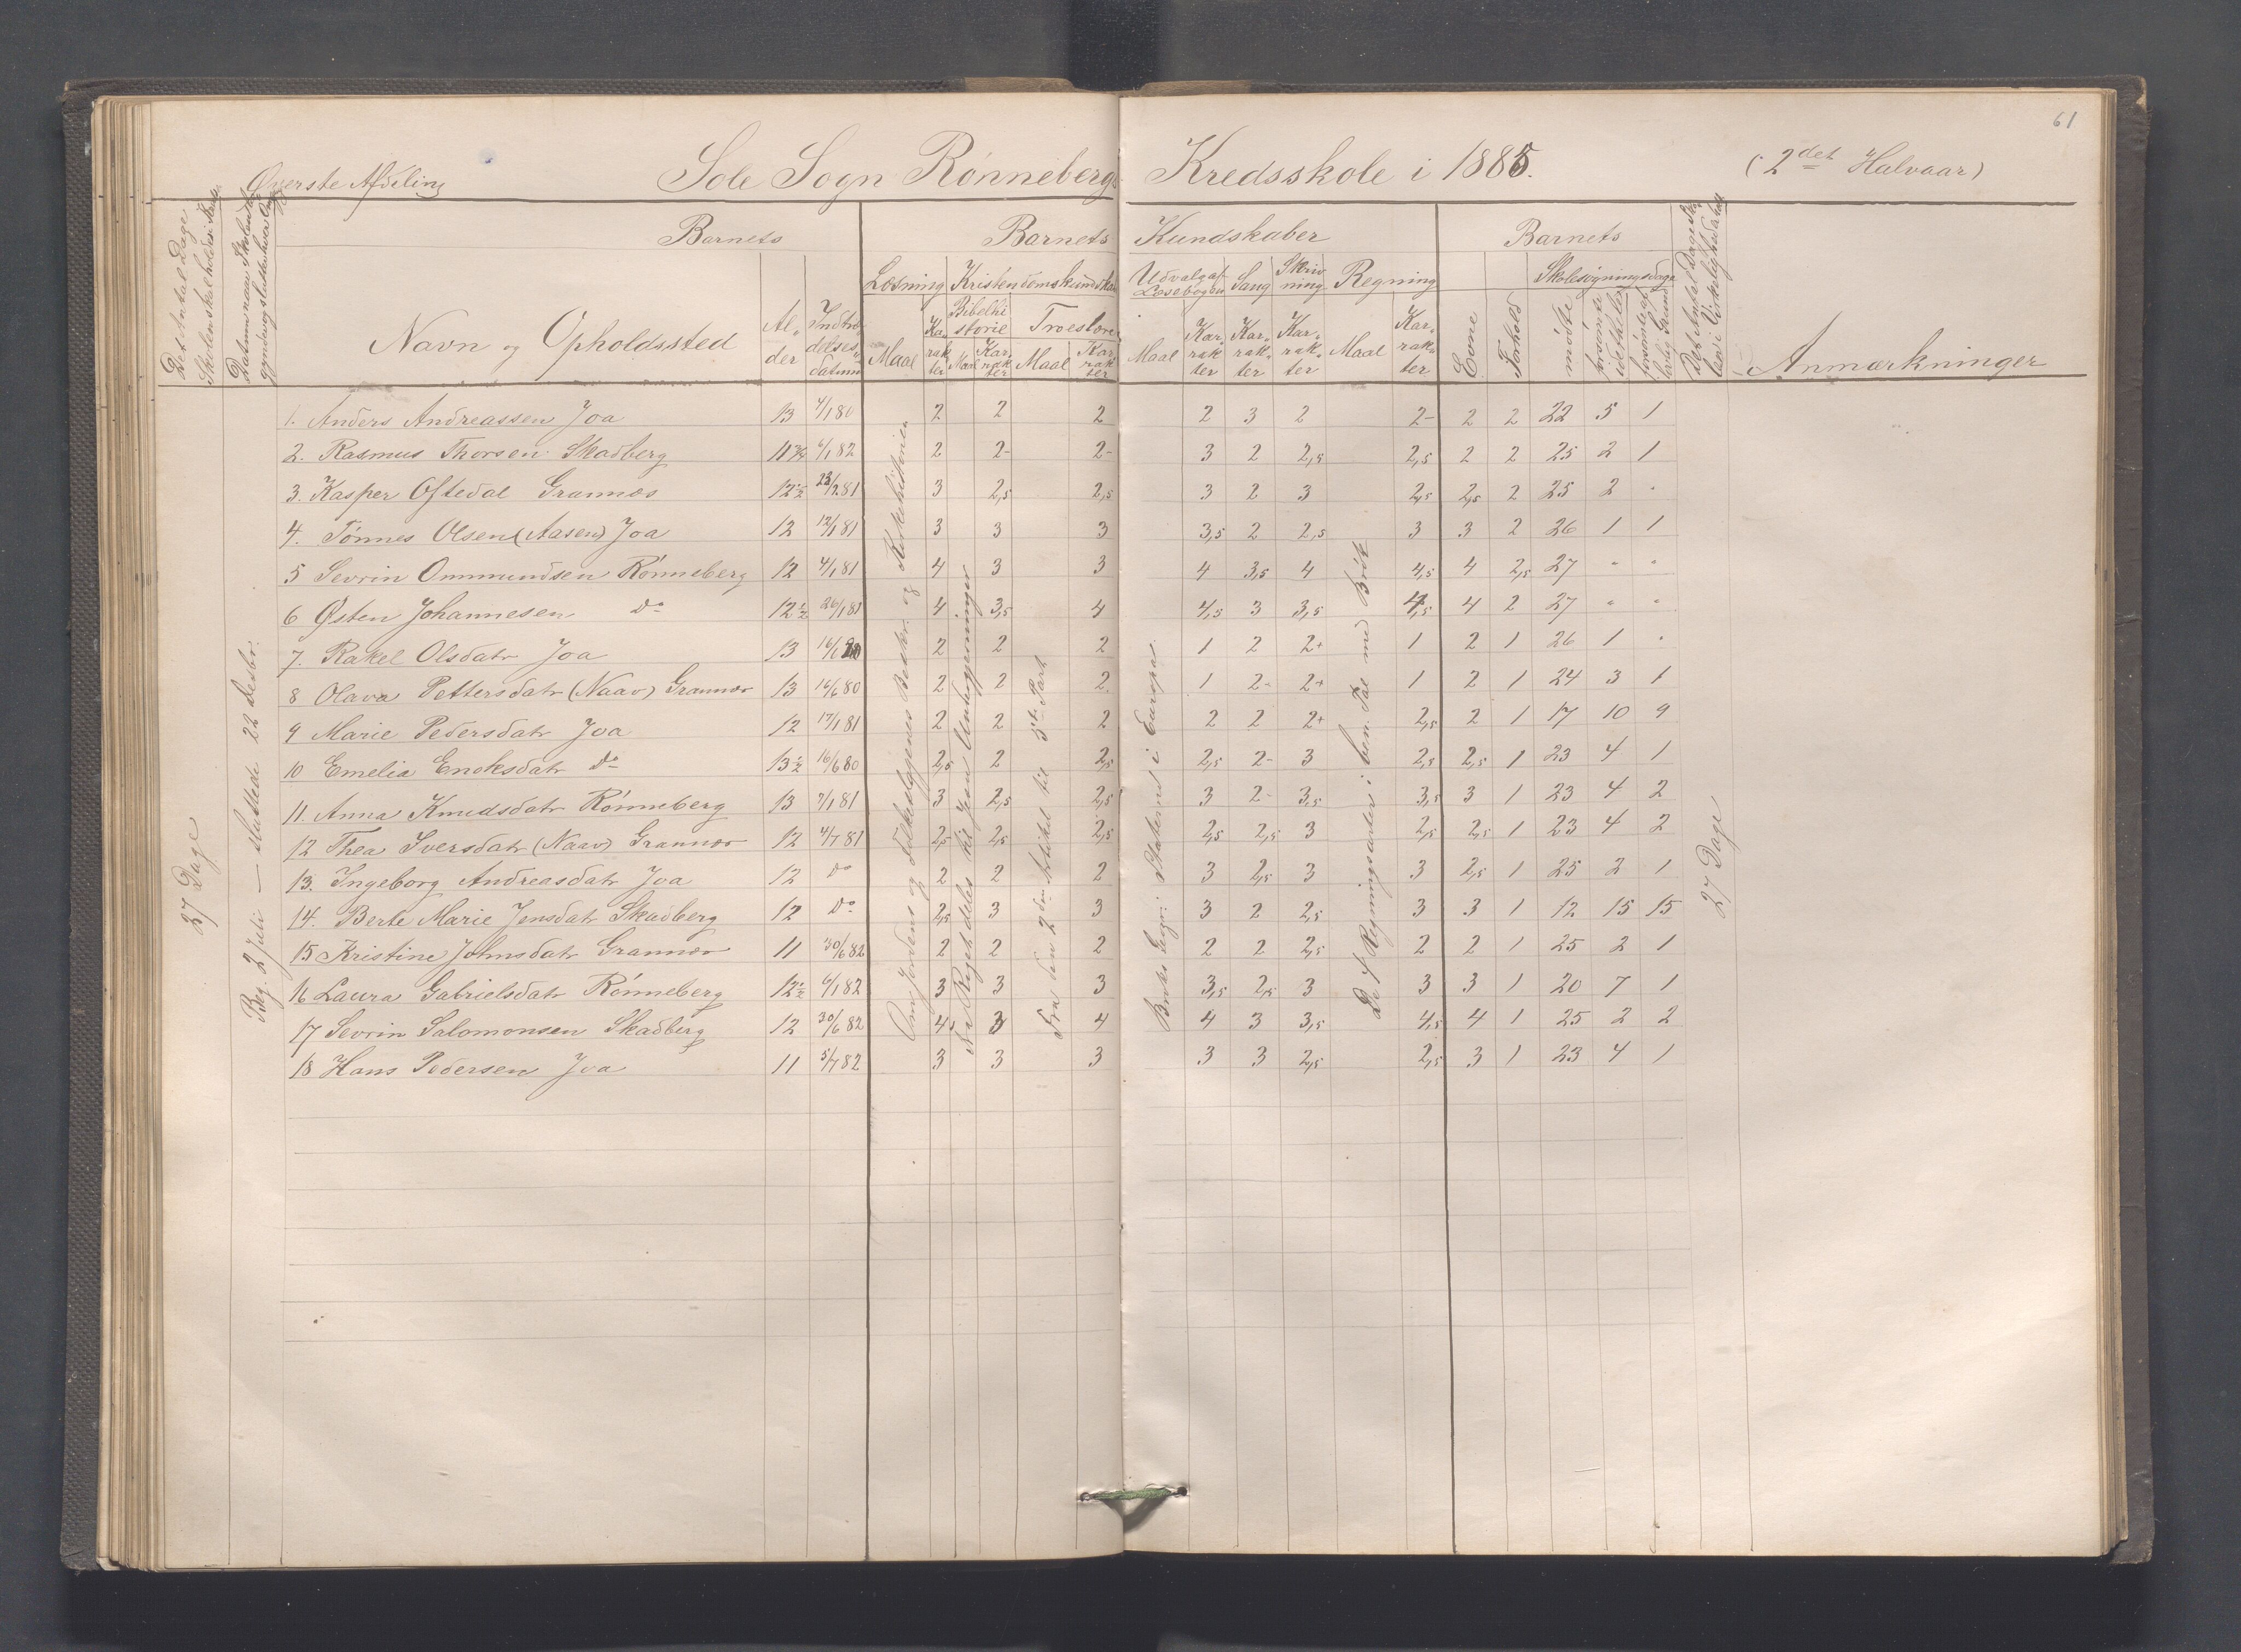 61
Øverste Afdeling Sole Sogn Rønneberg Kredsskole i 1885. (2det Halvaar)
Det Antal Dage Skolen skal holdes i Kredsen
Datum naar Skolen begyndte og sluttede hver Omgang
Barnets Barnets Kundskaber Barnets
Navn og Opholdssted Alder Indtrædelsesdatum
Læsning Kristendomskundskab Udvalg af Læsebogen Sang Skrivning Regning
Bibelhistorie Troeslære
Maal Karakter Maal Karakter Maal Karakter Maal Karakter Karakter Karakter Maal Karakter
Evne Forhold Skolesøgningsdage mødte forsømte
Det Antal Dage Skolen i Virkeligheden er holdt
Anmærkninger
27 Dage
Beg. 2 Juli — sluttede 22 Desbr.
Fra den 2den Artikel til 5te Part
27 Dage
1. Anders Andreassen Joa 13 4/1 80 2 2 2 2 3 2 2- 2 2 22 5 1
2. Rasmus Thorsen Skadberg 6/1 82 2 2- 2- 3 2 2,5 2,5 2 2 25 2 1
3. Kasper Oftedal Grannæs 12½ 3 2,5 2,5 3 2 3 2,5 2,5 2 25 2 "
4. Tønnes Olsen (Aasen) Joa 12 12/1 81 3 3 3 3,5 2 2,5 3 3 2 26 1 1
5 Sevrin Ommundsen Rønneberg 12 4/1 81 4 3 3 4 3,5 4 4,5 4 2,5 27 " "
6 Østen Johannesen Do 12½ 26/1 81 4 3,5 4 4,5 3 3,5 4,5 4 2 27 " "
7. Rakel Olsdatr Joa 13 2 2 2 1 2 2+ 1 2 1 26 1 "
8 Olava Pettersdatr (Naav) Grannæs 13 16/6 80 2 2 2 1 2- 2+ 1 2 1 24 3 1
9 Marie Pedersdatr Joa 12 17/1 81 2 2 2 2 2 2+ 2,5 2 1 17 10 9
10 Emelia Enoksdatr Do 13½ 16/6 80 2,5 2 2,5 2,5 2- 3 2,5 2,5 1 23 4 1
11. Anna Knudsdatr Rønneberg 13 7/1 81 3 2,5 2,5 3 2- 3,5 3,5 3 1 23 4 2
12 Thea Iversdatr (Naav) Grannæs 12 4/7 81 2,5 2,5 2,5 2,5 2,5 3 2,5 2,5 1 23 4 2
13. Ingeborg Andreasdatr Joa 12 Do 2 2 2 3 2,5 3 3 2,5 1 25 2 1
14. Berte Marie Jensdatr Skadberg 12 Do 2,5 3 3 3 2 2,5 3 3 1 12 15 15
15 Kristine Johnsdatr Grannæs 11 30/6 82 2 2 2 2 2 2,5 2 2 1 25 2 1
16 Laura Gabrielsdatr Rønneberg 12½ 6/1 82 3 3 3 3,5 2,5 3 3 3 1 20 7 1
17 Sevrin Salomonsen Skadberg 12 30/6 82 4 3 4 4 3 3,5 4,5 4 1 25 2 2
18 Hans Pedersen Joa 11 5/7 82 3 3 3 3 3 2,5 2,5 3 1 23 4 1